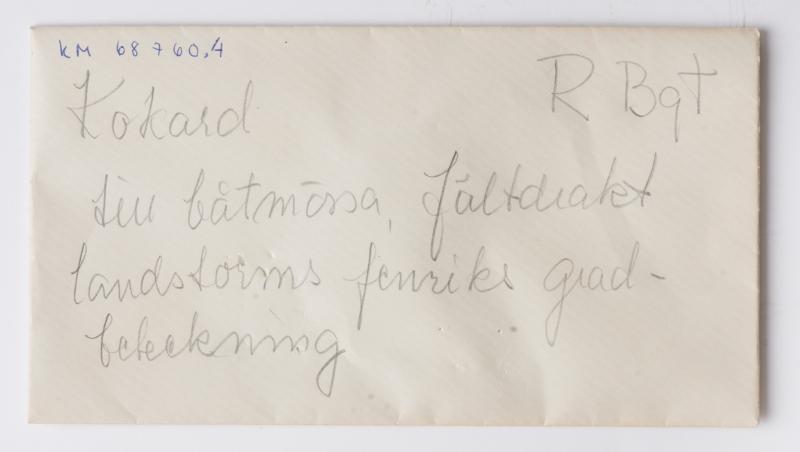 KM 68760,4
R Bgt
Kokard
till båtmössa, fältdräkt
landstorms fenriks grad-
beteckning